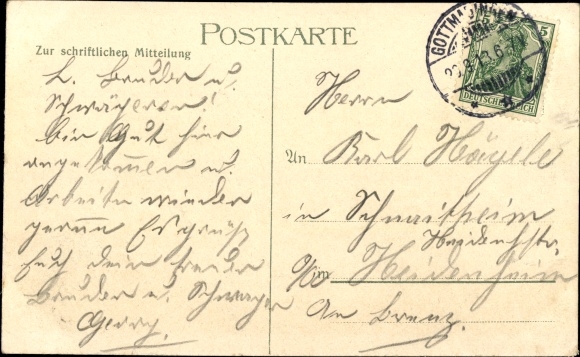 POSTKARTE
Zur schriftlichen Mitteilung
L. Bruder u.
Schwägerin!
bin Gut hier
angekommen u.
Arbeite wieder
gerne Es grüßt
Euch dein treuer
Bruder u. Schwager
Georg.
GOTTMADINGEN
5
DEUTSCHES REICH
Herrn
An Karl Hägele
in Schnaitheim
Heidenh. Str.
Heidenheim
an Brenz.